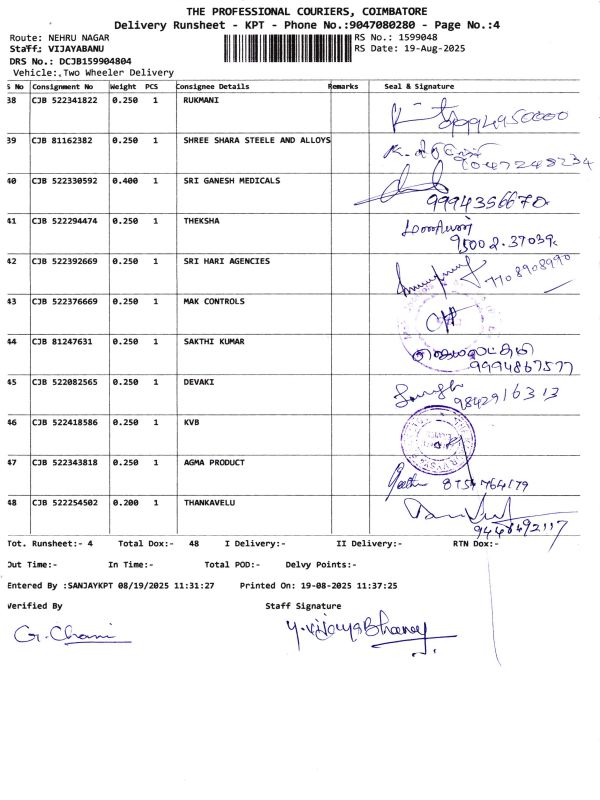 THE PROFESSIONAL COURIERS, COIMBATORE
Delivery Runsheet - KPT - Phone No.:9047080280 - Page No.:4
Route: NEHRU NAGAR RS No.: 1599048
Staff: VIJAYABANU RS Date: 19-Aug-2025
DRS No.: DCJB159904804
Vehicle: Two Wheeler Delivery
S No Consignment No Weight PCS Consignee Details Remarks Seal & Signature
38 CJB 522341822 0.250 1 RUKMANI
39 CJB 81162382 0.250 1 SHREE SHARA STEELE AND ALLOYS
40 CJB 522330592 0.400 1 SRI GANESH MEDICALS 9994356670
41 CJB 522294474 0.250 1 THEKSHA 95002 37039
42 CJB 522392669 0.250 1 SRI HARI AGENCIES 7708908990
43 CJB 522376669 0.250 1 MAK CONTROLS
44 CJB 81247631 0.250 1 SAKTHI KUMAR 9994867577
45 CJB 522082565 0.250 1 DEVAKI 9842916313
46 CJB 522418586 0.250 1 KVB
47 CJB 522343818 0.250 1 AGMA PRODUCT 8754764179
48 CJB 522254502 0.200 1 THANKAVELU
Tot. Runsheet:- 4 Total Dox:- 48 I Delivery:- II Delivery:- RTN Dox:-
Out Time:- In Time:- Total POD:- Delvy Points:-
Entered By :SANJAYKPT 08/19/2025 11:31:27 Printed On: 19-08-2025 11:37:25
Verified By Staff Signature
G. Chani Y. Vijaya Bhanu